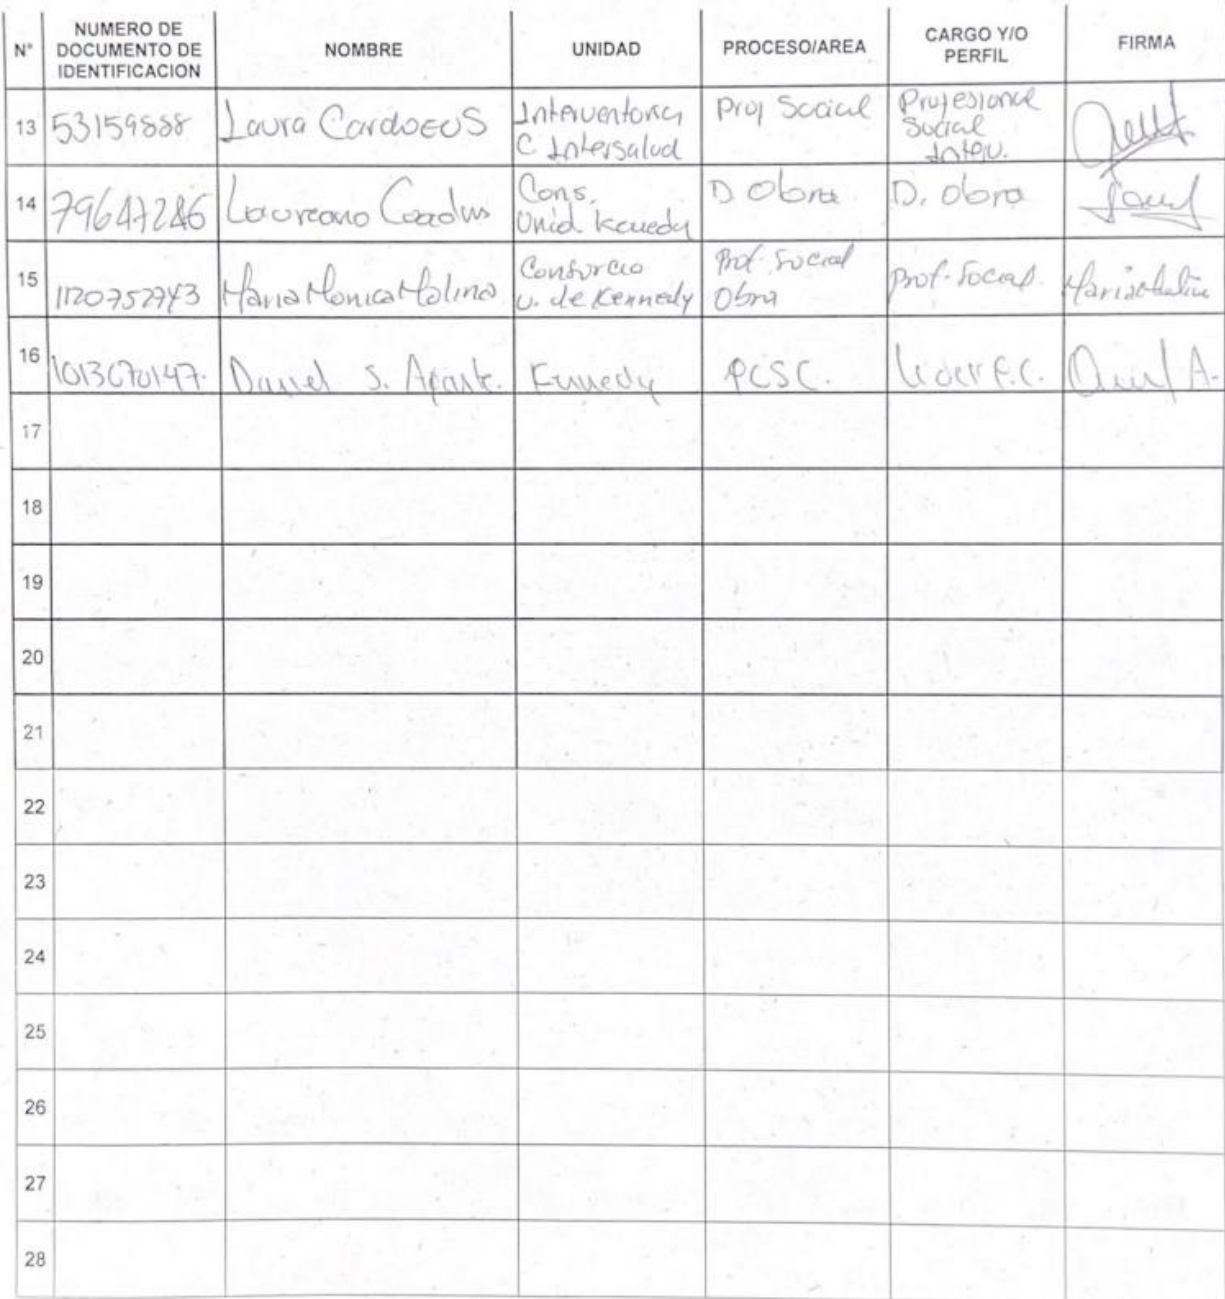 N° NUMERO DE DOCUMENTO DE IDENTIFICACION NOMBRE UNIDAD PROCESO/AREA CARGO Y/O PERFIL FIRMA
13 53159888 Laura Interventoria C Intersalud Prof Social Profesional Social Interv.
14 79647286 Laureano Cons. Unid. Kenedy D. Obra D. Obra
15 1120752943 Maria Monica Molina Consorcio U. de Kennedy Prof. Social Obra Prof. Social.
16 1013670147. Daniel S. Kennedy PCSC. Lider P.C. A.
17
18
19
20
21
22
23
24
25
26
27
28